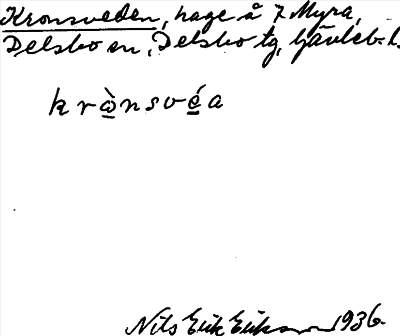 Kronsveden, hage å 7 Myra,
Delsbo sn, Delsbo tg, Gävleb. l.
krò̲nsvé̲a
Nils Erik Erikson 1936.